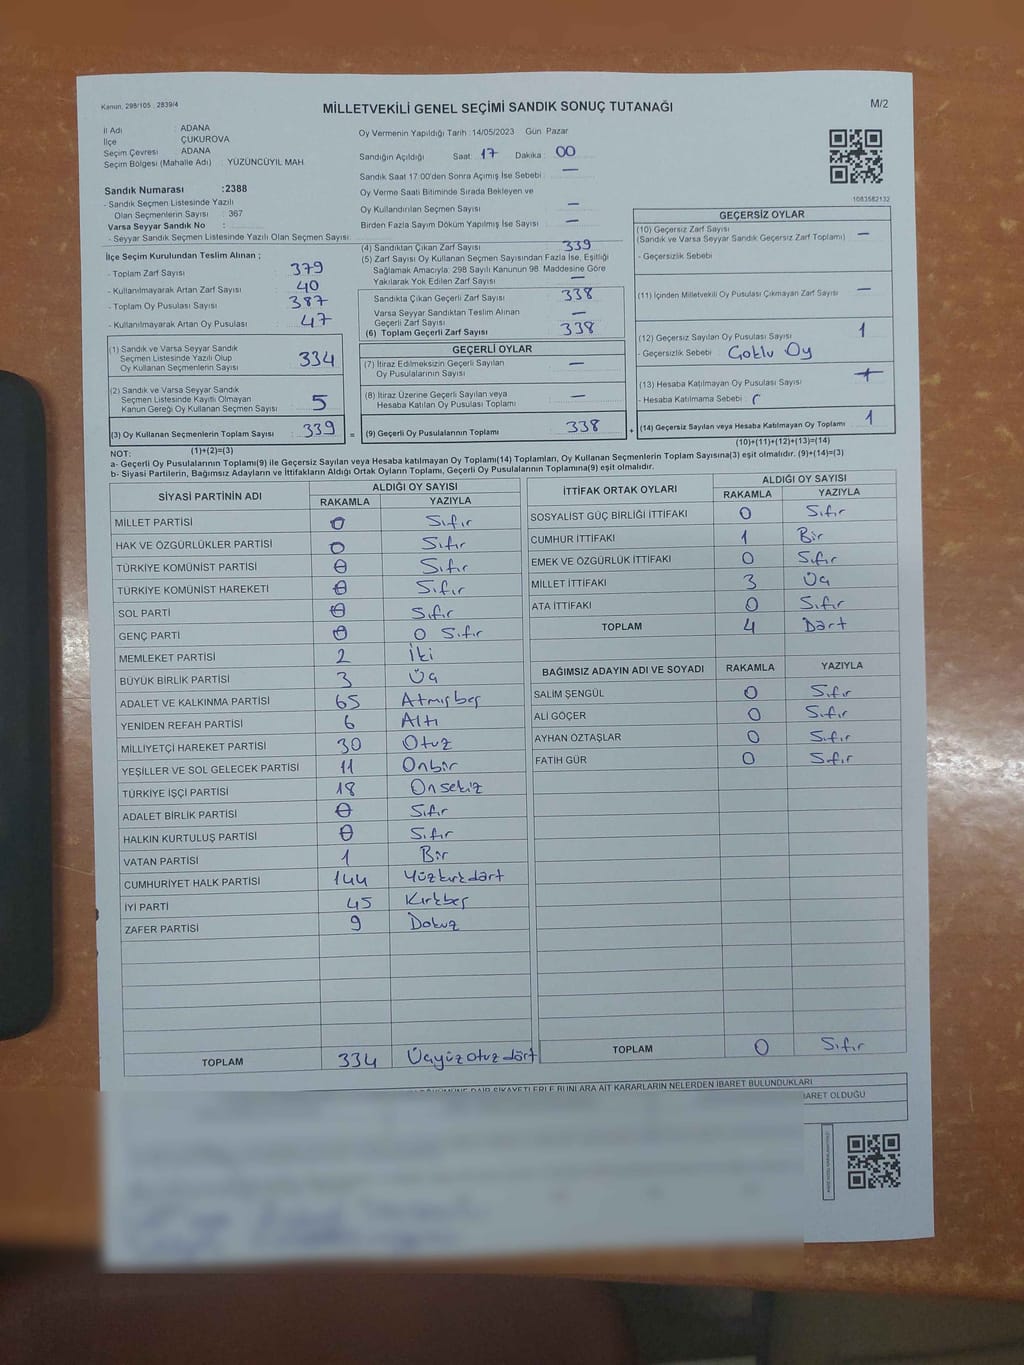 Kanun, 298/105 , 2839/4
MİLLETVEKİLİ GENEL SEÇİMİ SANDIK SONUÇ TUTANAĞI
M/2
İl Adı : ADANA
İlçe ÇUKUROVA
Seçim Çevresi : ADANA
Seçim Bölgesi (Mahalle Adı) : YÜZÜNCÜYIL MAH.
Sandık Numarası :2388
- Sandık Seçmen Listesinde Yazılı
Olan Seçmenlerin Sayısı : 367
Varsa Seyyar Sandık No :
- Seyyar Sandık Seçmen Listesinde Yazılı Olan Seçmen Sayısı:
Oy Vermenin Yapıldığı Tarih :14/05/2023 Gün Pazar
Sandığın Açıldığı Saat: 17 Dakika : 00
Sandık Saat 17:00'den Sonra Açımış İse Sebebi : —
Oy Verme Saati Bitiminde Sırada Bekleyen ve
Oy Kullandırılan Seçmen Sayısı —
Birden Fazla Sayım Döküm Yapılmış İse Sayısı —
1083582132
İlçe Seçim Kurulundan Teslim Alınan ;
- Toplam Zarf Sayısı : 379
- Kullanılmayarak Artan Zarf Sayısı : 40
- Toplam Oy Pusulası Sayısı : 387
- Kullanılmayarak Artan Oy Pusulası : 47
(1) Sandık ve Varsa Seyyar Sandık
Seçmen Listesinde Yazılı Olup
Oy Kullanan Seçmenlerin Sayısı 334
(2) Sandık ve Varsa Seyyar Sandık
Seçmen Listesinde Kayıtlı Olmayan
Kanun Gereği Oy Kullanan Seçmen Sayısı 5
(3) Oy Kullanan Seçmenlerin Toplam Sayısı 339
(1)+(2)=(3)
(4) Sandıktan Çıkan Zarf Sayısı 339
(5) Zarf Sayısı Oy Kullanan Seçmen Sayısından Fazla İse, Eşitliği
Sağlamak Amacıyla; 298 Sayılı Kanunun 98. Maddesine Göre
Yakılarak Yok Edilen Zarf Sayısı —
Sandıkta Çıkan Geçerli Zarf Sayısı 338
Varsa Seyyar Sandıktan Teslim Alınan
Geçerli Zarf Sayısı —
(6) Toplam Geçerli Zarf Sayısı 338
GEÇERLİ OYLAR
(7) İtiraz Edilmeksizin Geçerli Sayılan
Oy Pusulalarının Sayısı —
(8) İtiraz Üzerine Geçerli Sayılan veya
Hesaba Katılan Oy Pusulası Toplamı —
= (9) Geçerli Oy Pusulalarının Toplamı 338
GEÇERSİZ OYLAR
(10) Geçersiz Zarf Sayısı
(Sandık ve Varsa Seyyar Sandık Geçersiz Zarf Toplamı) —
- Geçersizlik Sebebi
(11) İçinden Milletvekili Oy Pusulası Çıkmayan Zarf Sayısı —
(12) Geçersiz Sayılan Oy Pusulası Sayısı 1
- Geçersizlik Sebebi Çoklu Oy
(13) Hesaba Katılmayan Oy Pusulası Sayısı
- Hesaba Katılmama Sebebi
+ (14) Geçersiz Sayılan veya Hesaba Katılmayan Oy Toplamı 1
(10)+(11)+(12)+(13)=(14)
NOT:
a- Geçerli Oy Pusulalarının Toplamı(9) ile Geçersiz Sayılan veya Hesaba katılmayan Oy Toplamı(14) Toplamları, Oy Kullanan Seçmenlerin Toplam Sayısına(3) eşit olmalıdır. (9)+(14)=(3)
b- Siyasi Partilerin, Bağımsız Adayların ve İttifakların Aldığı Ortak Oyların Toplamı, Geçerli Oy Pusulalarının Toplamına(9) eşit olmalıdır.
SİYASİ PARTİNİN ADI ALDIĞI OY SAYISI
RAKAMLA YAZIYLA
MİLLET PARTİSİ 0 Sıfır
HAK VE ÖZGÜRLÜKLER PARTİSİ 0 Sıfır
TÜRKİYE KOMÜNİST PARTİSİ 0 Sıfır
TÜRKİYE KOMÜNİST HAREKETİ 0 Sıfır
SOL PARTİ 0 Sıfır
GENÇ PARTİ 0 0 Sıfır
MEMLEKET PARTİSİ 2 İki
BÜYÜK BİRLİK PARTİSİ 3 Üç
ADALET VE KALKINMA PARTİSİ 65 Atmışbeş
YENİDEN REFAH PARTİSİ 6 Altı
MİLLİYETÇİ HAREKET PARTİSİ 30 Otuz
YEŞİLLER VE SOL GELECEK PARTİSİ 11 Onbir
TÜRKİYE İŞÇİ PARTİSİ 18 Onsekiz
ADALET BİRLİK PARTİSİ 0 Sıfır
HALKIN KURTULUŞ PARTİSİ 0 Sıfır
VATAN PARTİSİ 1 Bir
CUMHURİYET HALK PARTİSİ 144 Yüzkırkdört
İYİ PARTİ 45 Kırkbeş
ZAFER PARTİSİ 9 Dokuz
TOPLAM 334 Üçyüzotuzdört
İTTİFAK ORTAK OYLARI ALDIĞI OY SAYISI
RAKAMLA YAZIYLA
SOSYALİST GÜÇ BİRLİĞİ İTTİFAKI 0 Sıfır
CUMHUR İTTİFAKI 1 Bir
EMEK VE ÖZGÜRLÜK İTTİFAKI 0 Sıfır
MİLLET İTTİFAKI 3 Üç
ATA İTTİFAKI 0 Sıfır
TOPLAM 4 Dört
BAĞIMSIZ ADAYIN ADI VE SOYADI RAKAMLA YAZIYLA
SALİM ŞENGÜL 0 Sıfır
ALİ GÖÇER 0 Sıfır
AYHAN ÖZTAŞLAR 0 Sıfır
FATİH GÜR 0 Sıfır
TOPLAM 0 Sıfır
ŞİKAYETLERLE BUNLARA AİT KARARLARIN NELERDEN İBARET BULUNDUKLARI
OLDUĞU